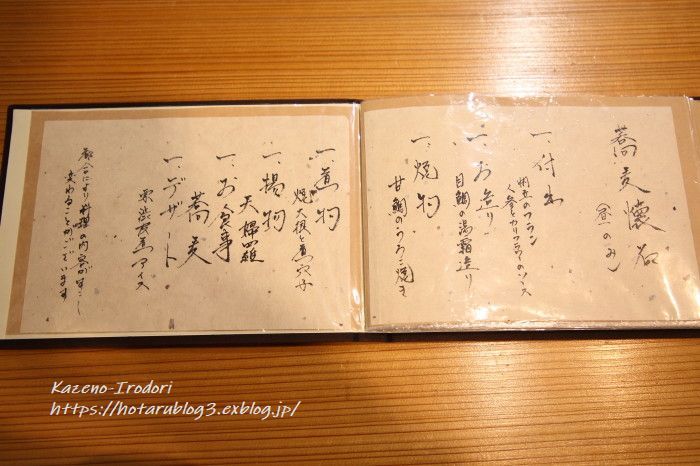 蕎麦懐石
(昼のみ)
一、付出
帆立のフラン
人参とカリフラワーのソース
一、お造り
目鯛の湯霜造り
一、焼物
甘鯛のうろこ焼き
一、煮物
焼大根と煮穴子
一、揚物
天婦羅
一、お食事
蕎麦
一、デザート
アイス
都合により料理の内容が少し
変わることがございます
Kazeno-Irodori
https://hotarublog3.exblog.jp/